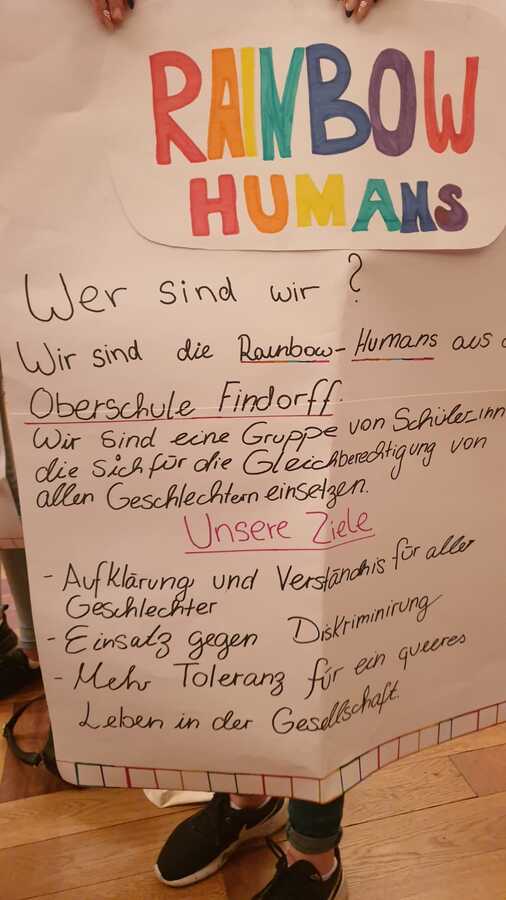 RAINBOW
HUMANS
Wer sind wir ?
Wir sind die Rainbow-Humans aus
Oberschule Findorff.
Wir sind eine Gruppe von Schüler_inn
die sich für die Gleichberechtigung von
allen Geschlechtern einsetzen.
Unsere Ziele
- Aufklärung und Verständnis für aller
Geschlechter
- Einsatz gegen Diskriminirung
- Mehr Toleranz für ein queeres
Leben in der Gesellschaft.